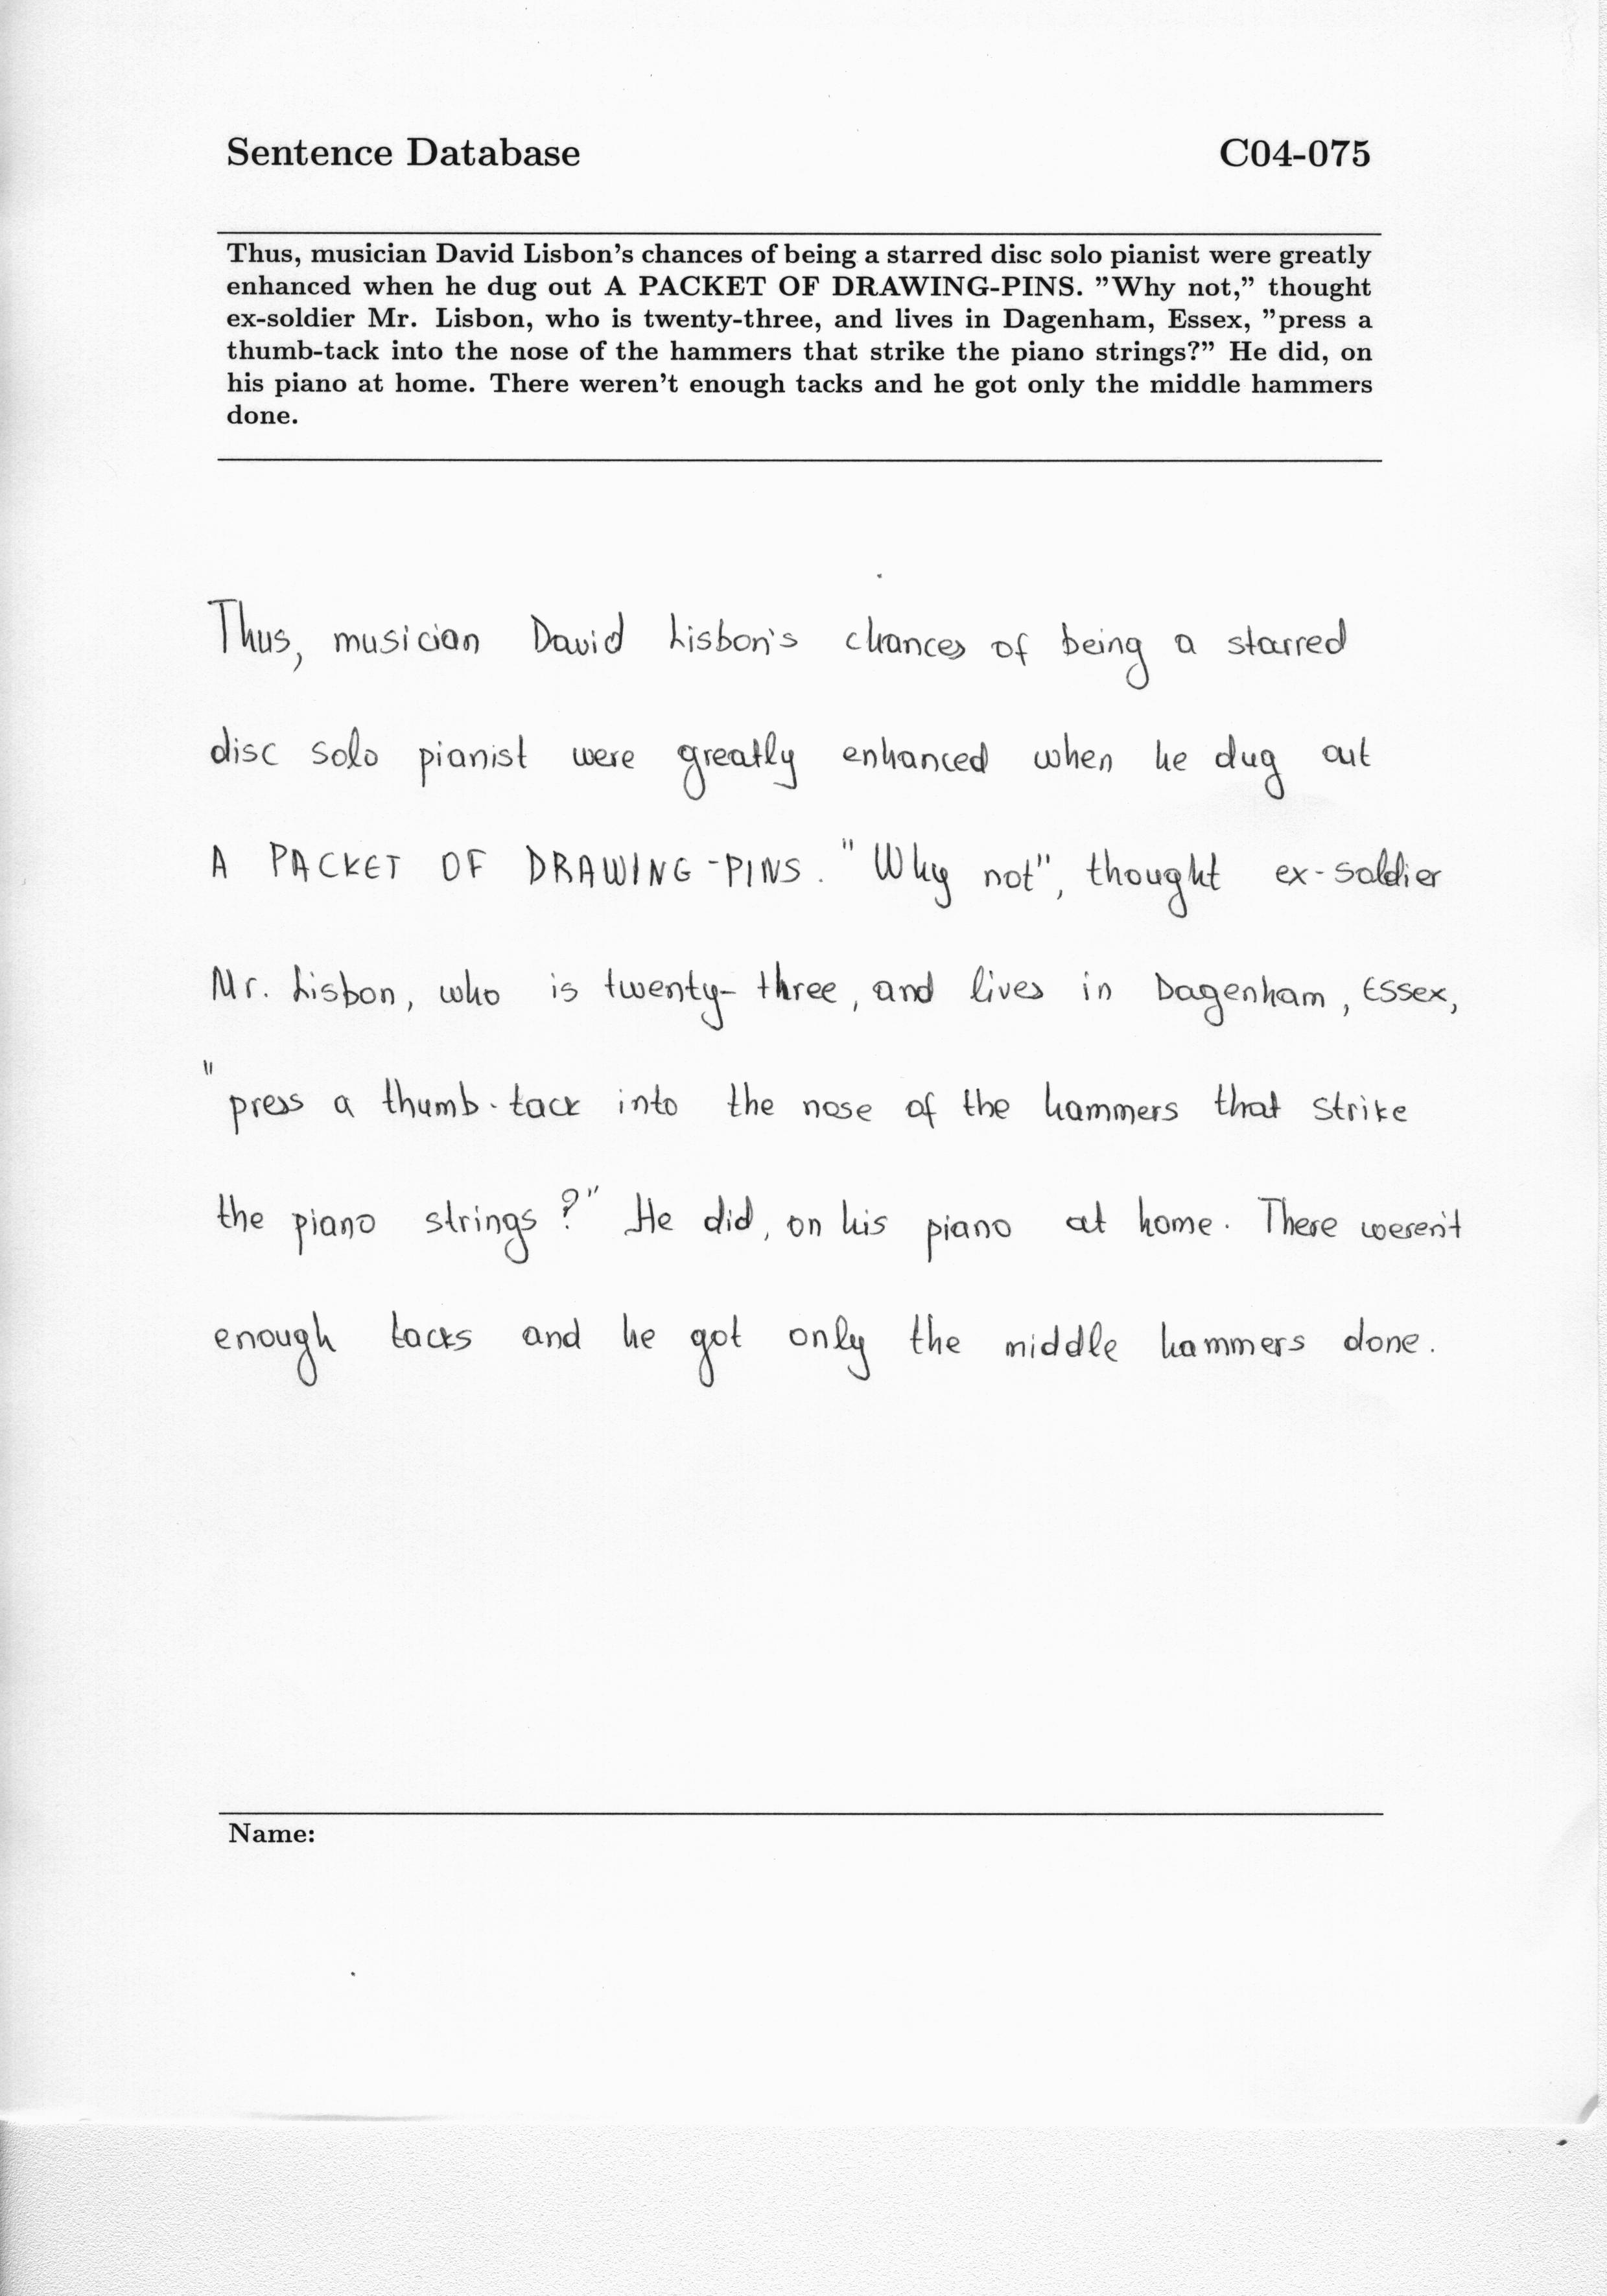 Sentence Database C04-075
Thus, musician David Lisbon's chances of being a starred disc solo pianist were greatly
enhanced when he dug out A PACKET OF DRAWING-PINS. ”Why not,” thought
ex-soldier Mr. Lisbon, who is twenty-three, and lives in Dagenham, Essex, ”press a
thumb-tack into the nose of the hammers that strike the piano strings?” He did, on
his piano at home. There weren't enough tacks and he got only the middle hammers
done.
Thus, musician David Lisbon's chances of being a starred
disc solo pianist were greatly enhanced when he dug out
A PACKET OF DRAWING-PINS. "Why not", thought ex-soldier
Mr. Lisbon, who is twenty-three, and lives in Dagenham, Essex,
"press a thumb-tack into the nose of the hammers that strike
the piano strings?" He did, on his piano at home. There weren't
enough tacks and he got only the middle hammers done.
Name: